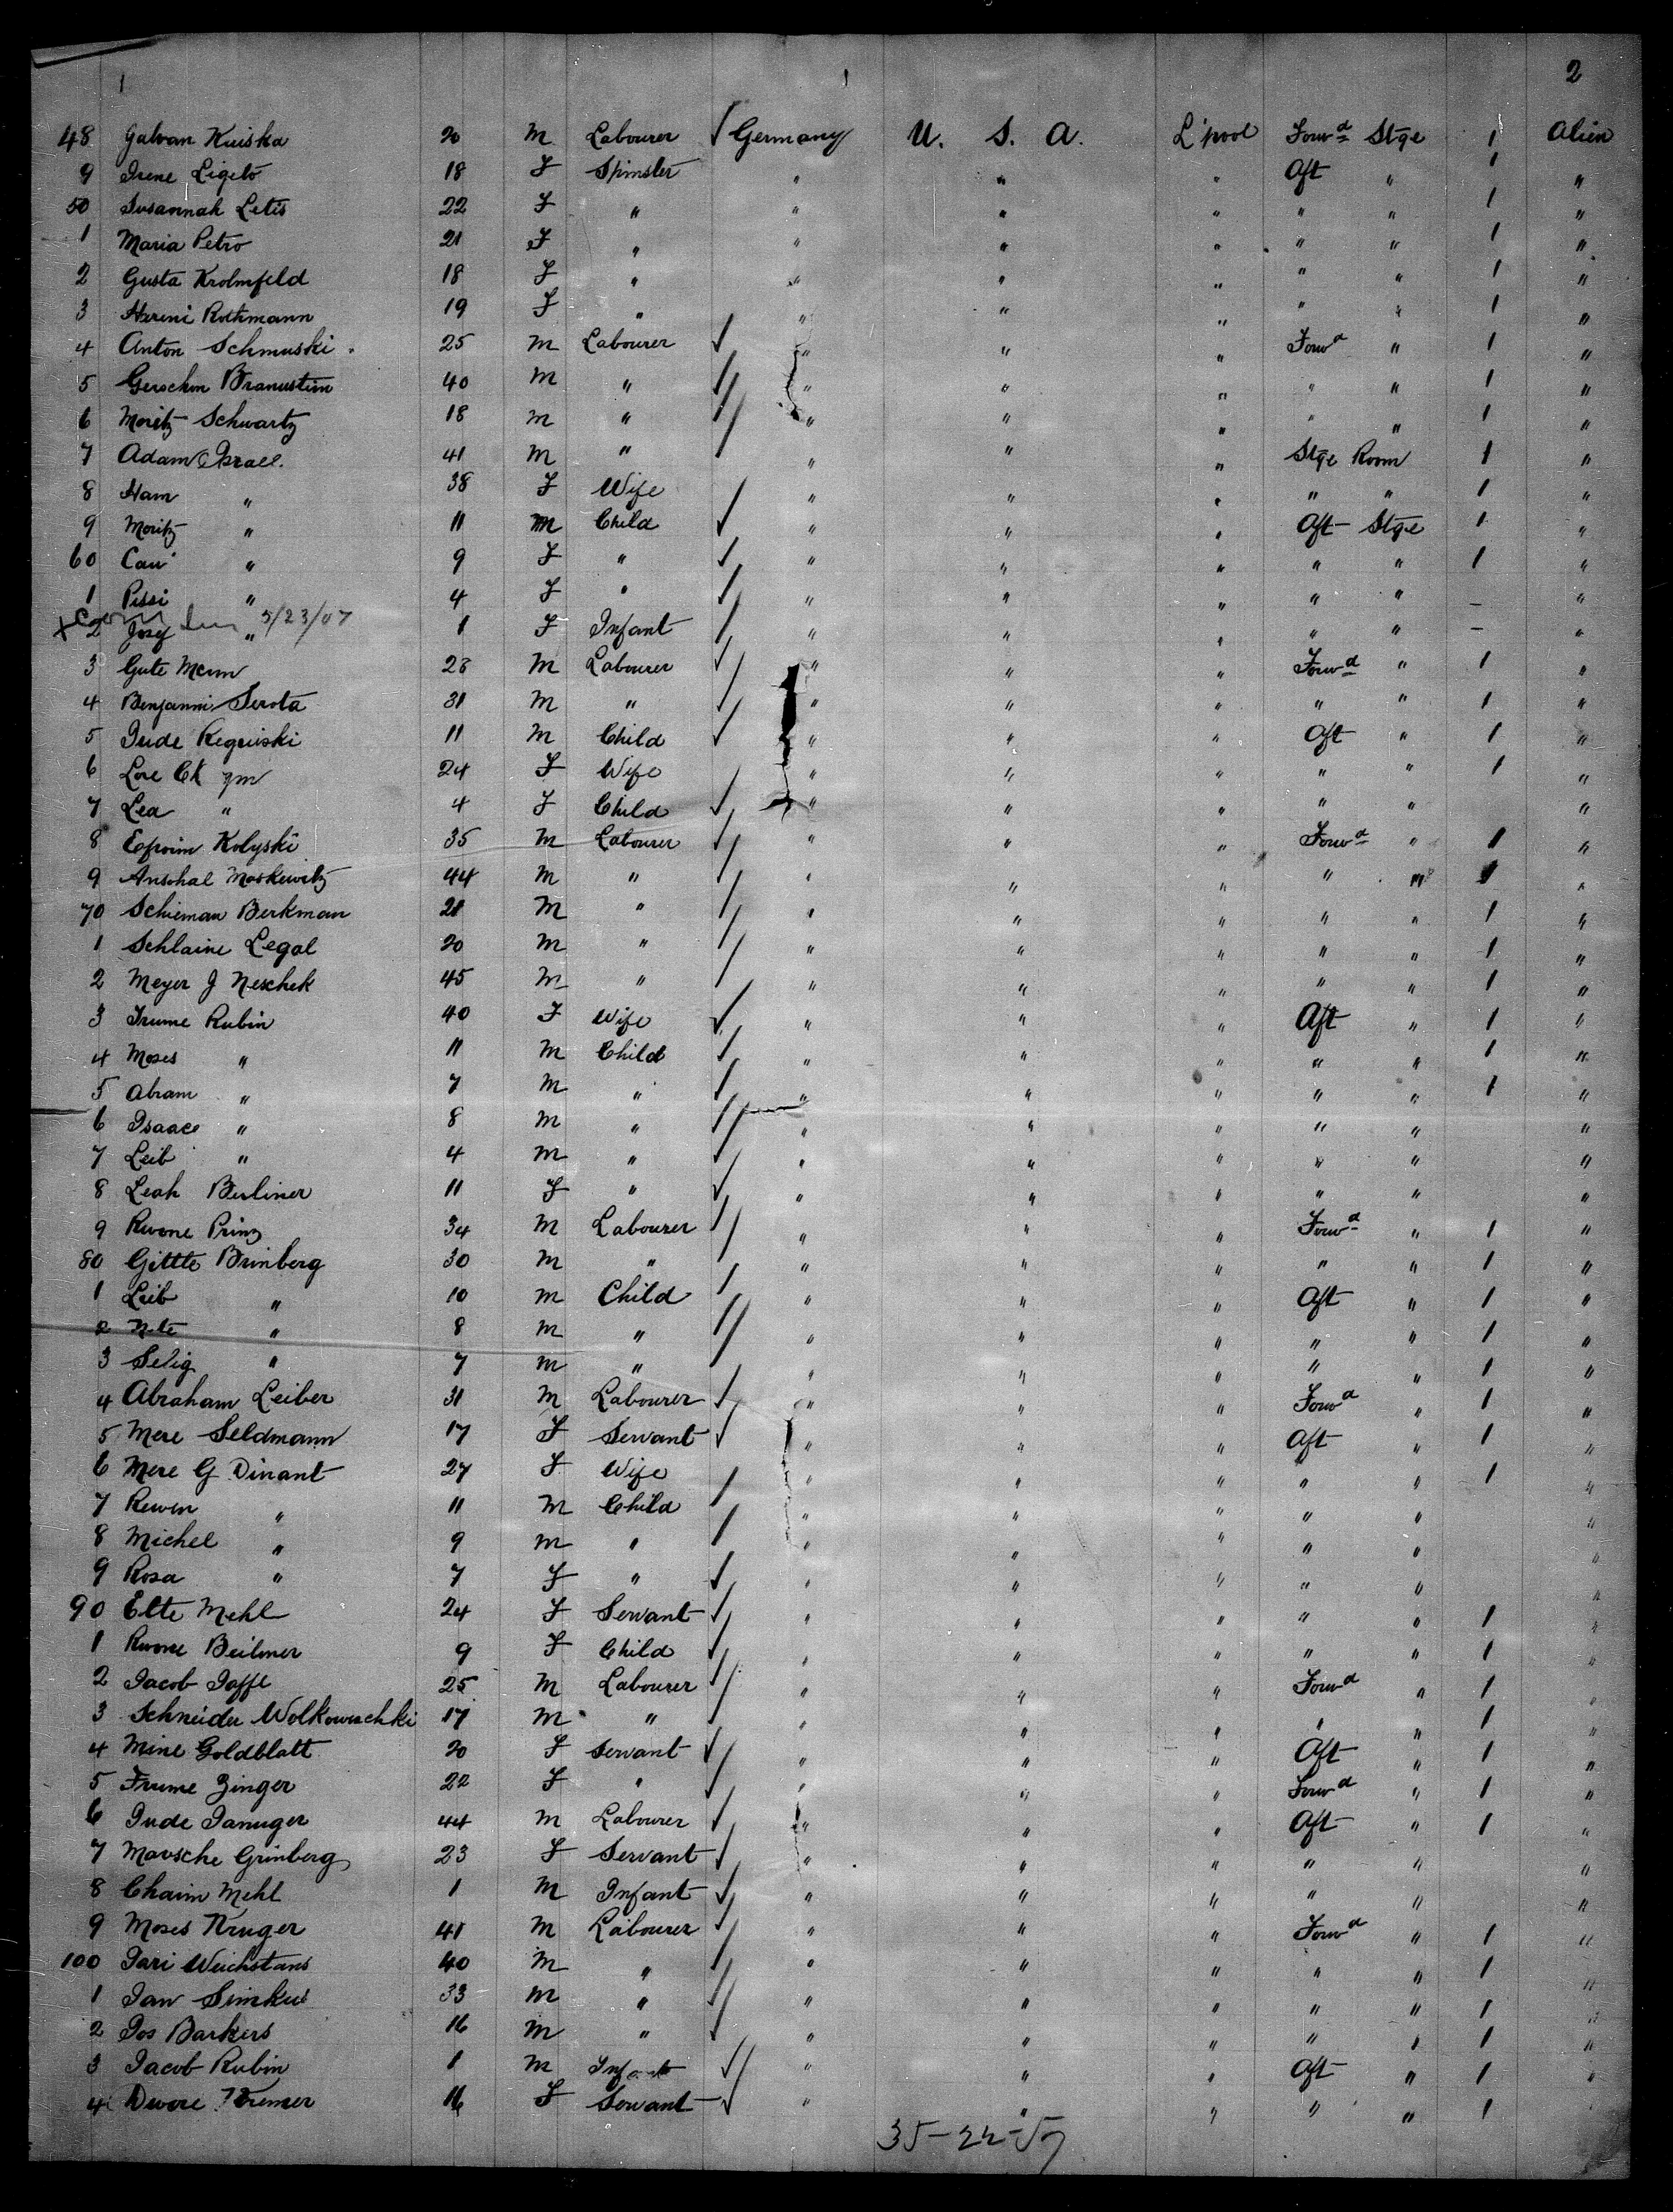 1 1 2
48 Galvan Kuiska 20 M Labourer √ Germany U. S. A. L'pool Forwd Stge 1 Alien
9 Irene Ligeto 18 F Spinster " " " Aft " 1 "
50 Susannah Letis 22 F " " " " " " 1 "
1 Maria Petro 21 F " " " " " " 1 "
2 Gusta Krolmfeld 18 F " " " " " " 1 "
3 Hereni Rothmann 19 F " " " " " " 1 "
4 Anton Schmuski 25 M Labourer √ " " " Forwd " 1 "
5 Gerschon Branustein 40 M " √ " " " " " 1 "
6 Moritz Schwartz 18 M " / " " " " " 1 "
7 Adam Israel 41 M " / " " " Stge Room 1 "
8 Ham " 38 F Wife / " " " " " 1 "
9 Moritz " 11 M Child √ " " " Aft Stge 1 "
60 Cari " 9 F " √ " " " " " 1 "
1 Pissi " 4 F " √ " " " " " - "
5/23/07
2 Josef " 1 F Infant / " " " " " - "
3 Gute Mann 28 M Labourer √ " " " Forwd " 1 "
4 Benjamin Serota 31 M " √ " " " " " 1 "
5 Jude Reguiski 11 M Child √ " " " Aft " 1 "
6 Lore 24 F Wife / " " " " " 1 "
7 Lea " 4 F Child √ " " " " " "
8 Efroim Kolyski 35 M Labourer √ " " " Forwd " 1 "
9 Anschal Moskewitz 44 M " / " " " " " 1 "
70 Schieman Berkman 21 M " / " " " " " 1 "
1 Schlaine Legal 20 M " / " " " " " 1 "
2 Meyer J Neschek 45 M " / " " " " " 1 "
3 Frume Rubin 40 F Wife √ " " " Aft " 1 "
4 Moses " 11 M Child √ " " " " " 1 "
5 Abram " 7 M " √ " " " " " 1 "
6 Isaac " 8 M " / " " " " " "
7 Leib " 4 M " / " " " " " "
8 Leah Berliner 11 F " √ " " " " " "
9 Rwone Prinz 34 M Labourer / " " " Forwd " 1 "
80 Gittle Brinberg 30 M " / " " " " " 1 "
1 Leib " 10 M Child / " " " Aft " 1 "
2 Note " 8 M " / " " " " " 1 "
3 Selig " 7 M " / " " " " " 1 "
4 Abraham Leiber 31 M Labourer √ " " " Forwd " 1 "
5 Mere Seldmann 17 F Servant √ " " " Aft " 1 "
6 Mere G Dinant 27 F Wife " " " " " 1 "
7 Rewen " 11 M Child / " " " " " "
8 Michel " 9 M " / " " " " " "
9 Rosa " 7 F " √ " " " " " "
90 Elte Mehl 24 F Servant √ " " " " " 1 "
1 Rwone Beilmer 9 F Child √ " " " " " 1 "
2 Jacob Jaffe 25 M Labourer √ " " " Forwd " 1 "
3 Schneider Wolkowischki 17 M " / " " " " " 1 "
4 Mine Goldblatt 20 F Servant √ " " " Aft " 1 "
5 Frume Zinger 22 F " / " " " Forwd " 1 "
6 Jude Januger 44 M Labourer √ " " " Aft " 1 "
7 Mavsche Grinberg 23 F Servant √ " " " " " "
8 Chaim Mehl 1 M Infant √ " " " " " "
9 Moses Kruger 41 M Labourer √ " " " Forwd " 1 "
100 Jari Weichstans 40 M " / " " " " " 1 "
1 Jan Simkus 33 M " √ " " " " " 1 "
2 Jos Barkers 16 M " / " " " " " 1 "
3 Jacob Rubin 1 M Infant √ " " " Aft " 1 "
4 Dwore Kremer 16 F Servant √ " " " " " 1 "
35-22-57